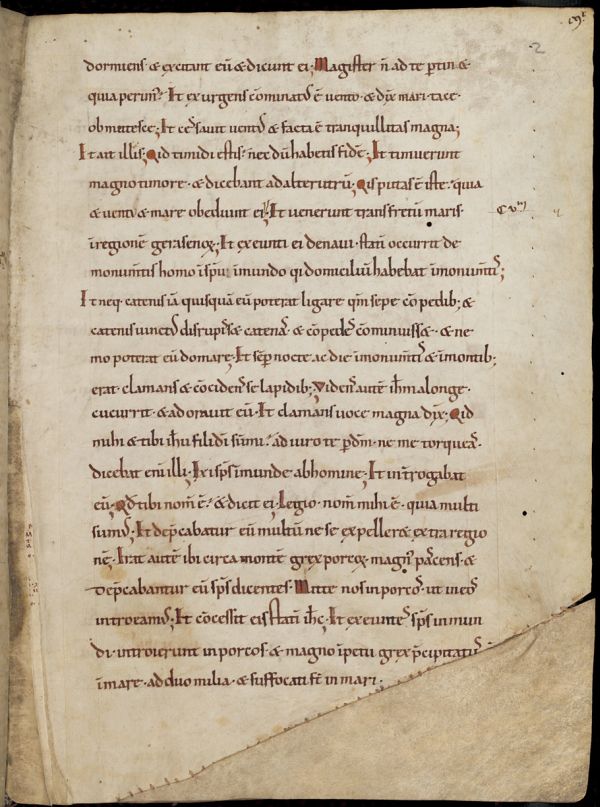 dormiens & excitant eū & dicunt ei; Magister n̄ ad te ꝑtin&
quia perim⁹? Et exurgens cōminat⁹ ē vento & dix̄ mari· tace·
obmutesce; Et cessavit vent⁹ & facta ē tranquillitas magna;
Et ait illis; Qid timidi estis; nec dū habetis fidē; Et timuerunt
magno timore· & dicebant ad alterutrū; Qis putas ē iste· quia
& venti & mare obediunt ei; Et venerunt trans fretū maris·
ī regionē gerasenoꝝ; Et exeunti ei de navi· statī occurrit de
monum̄tis homo ī spū īmundo qi domiciliū habebat ī monum̄tis;
Et neq· catenis iā quisquā eū poterat ligare qm̄ sepe cōpedib; &
catenis vinct⁹ disrupiss& catenas· & cōpedes cōminuiss& · & ne
mo poterat eū domare; Et semp̄ nocte ac die ī monum̄tis & ī montib;
erat· clamans & cōcidens se lapidib; Videns autē ih̄m a longe·
cucurrit· & adoravit eū· Et clamans voce magna dix̄; Qid
mihi & tibi ih̄u fili dī sūmi? adiuro te ꝑ dm̄· ne me torqueas·
dicebat enī illi· Exi sp̄s īmunde ab homine; Et int̄rogabat
eū; Qd̄ tibi nom̄ ē? & dicit ei· Legio· nom̄ mihi ē· quia multi
sum⁹; Et dep̄cabatur eū multū ne se expeller& extra regio
nē; Erat autē ibi circa montē grex porcoꝝ magn⁹ pascens· &
dep̄cabantur eū sp̄s dicentes· Mitte nos in porcos· ut in eos
introeam⁹; Et cōcessit eis statī ih̄c· Et exeuntes sp̄s inmun
di· introierunt in porcos· & magno īpetu grex p̄cipitat⁹
ī mare· ad duo milia· & suffocati st̄ in mari·
2